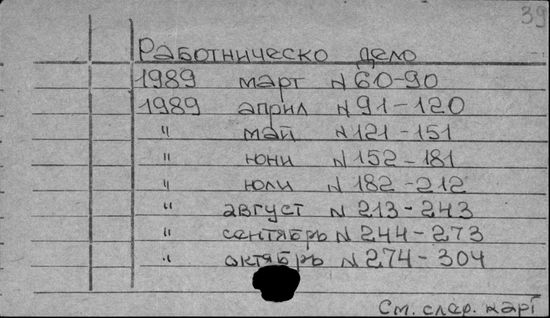 39
Работническо дело
1989 март N 60-90
1989 април N 91-120
" май N 121-151
" юни N 152-181
" юли N 182-212
" август N 213-243
" сентябрь N 244-273
" октябрь N 274-304
См. след. карт